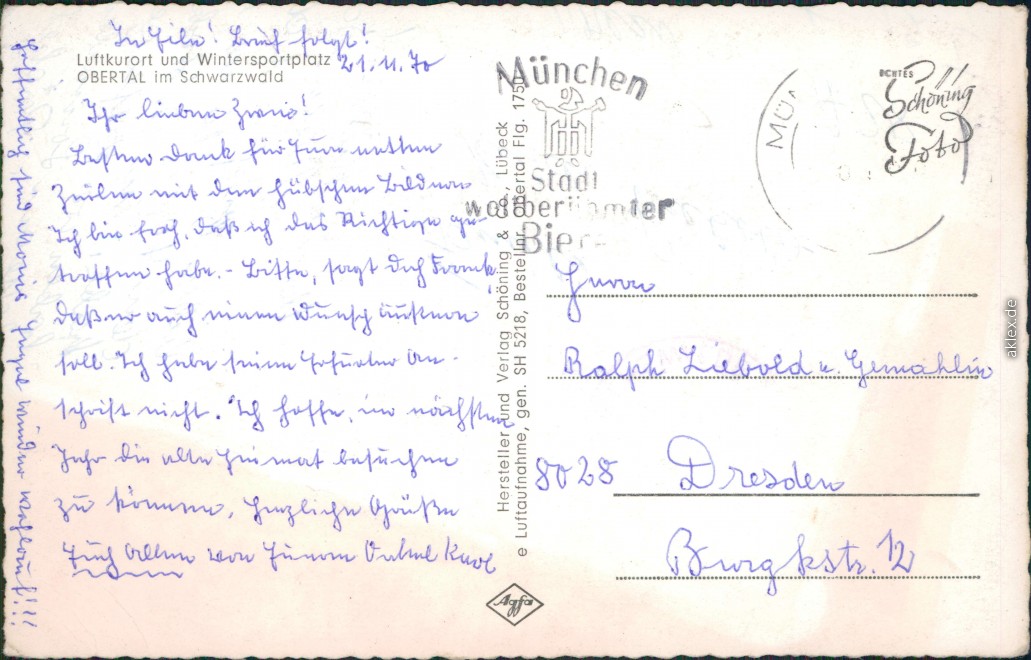 In Eile! Brief folgt!
Luftkurort und Wintersportplatz 21.11.70
OBERTAL im Schwarzwald
Ihr lieben Zwei!
Besten Dank für Eure netten
Zeilen mit den hübschen Bildern
Ich bin froh, daß ich das Richtige ge-
troffen habe. - Bitte, sagt doch Frank,
daß er auch einen Wunsch äußern
soll. Ich habe seine Erfurter An-
schrift nicht. Ich hoffe, im nächsten
Jahr die alte Heimat besuchen
zu können. Herzliche Grüße
Euch allen von Eurem Onkel Karl
Hoffentlich sind Eure wieder wohlauf!!!
Hersteller und Verlag Schöning & Co., Lübeck
e Luftaufnahme, gen. SH 5218, Bestellnr. Obertal Flg. 1750
München
Stadt
weltberühmter
Biere
MÜ
ECHTES
Schöning
Foto
Herrn
Ralph Liebold u. Gemahlin
8028 Dresden
Burgkstr. 12
Agfa
aklex.de